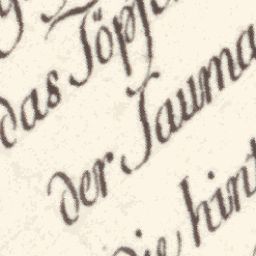 das Töpf
der Tauma
die hint